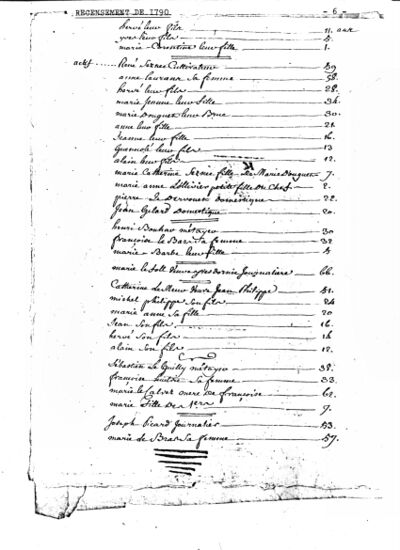 RECENSEMENT DE 1790 - 6 -
hervé leur fils 11. ans
yves leur fils 5.
marie Corentine leur fille 1.
actif René Sernes Cultivateur 59
anne sa femme 58.
hervé leur fils 28.
marie Jeanne leur fille 34.
marie Douguet leur Bruc 30.
anne leur fille 21.
Jeanne leur fille 16.
Guenolé leur fils 13
alain leur fils 12.
marie Catherine Sernes fille de Marie Douguet 7.
marie anne Lollivier petite fille du Chef 2.
pierre Le Dervouet Domestique 22.
Jean Gelard Domestique 20.
henri Bonhar métayer 30
françoise le Barr sa femme 32
marie Barbe leur fille 4
marie le Joll Veuve Journaliere 66.
Catherine Le Meur Veuve Jean Philippe 51.
michel philippe son fils 24
marie anne sa fille 20
Jean son fils 16.
hervé son fils 14
alain son fils 12.
Sébastien Le Guilly métayer 38.
françoise sa femme 33.
marie le Calvet mere de françoise 62.
marie fille de 1er 9.
Joseph Picard Journalier 53.
marie de Bras sa femme 57.